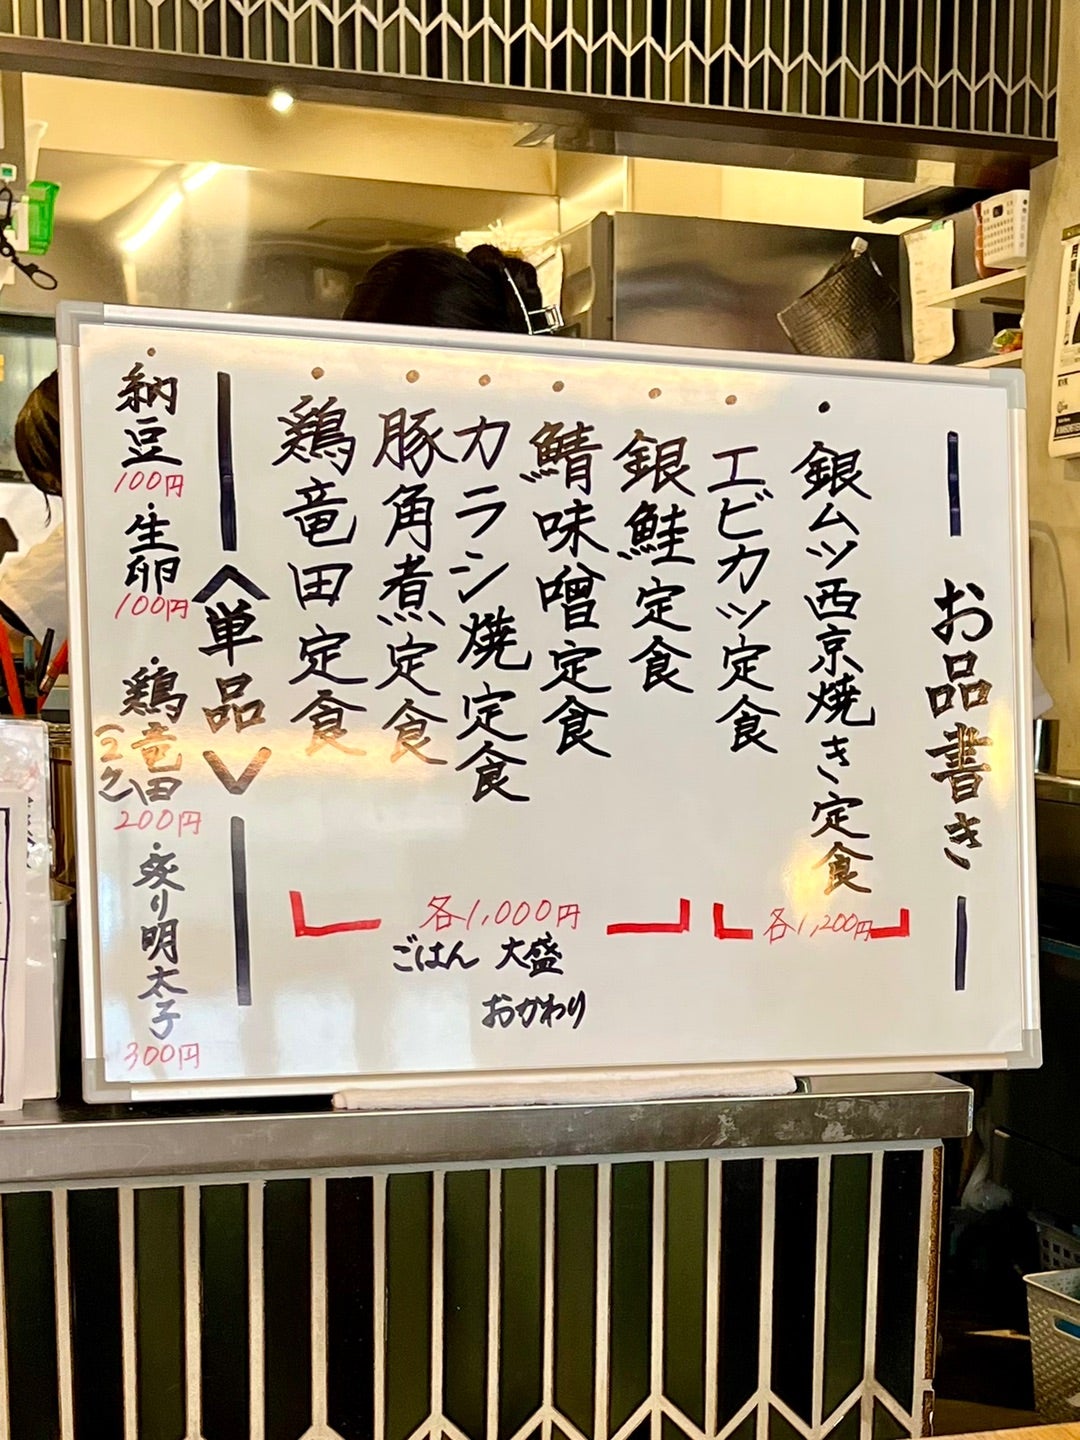 お品書き
銀ムツ西京焼き定食
エビカツ定食
各1,200円
銀鮭定食
鯖味噌定食
カラシ焼定食
豚角煮定食
鶏竜田定食
各1,000円
ごはん 大盛
おかわり
<単品>
・納豆
100円
・生卵
100円
・鶏竜田
(2ヶ)
200円
・炙り明太子
300円